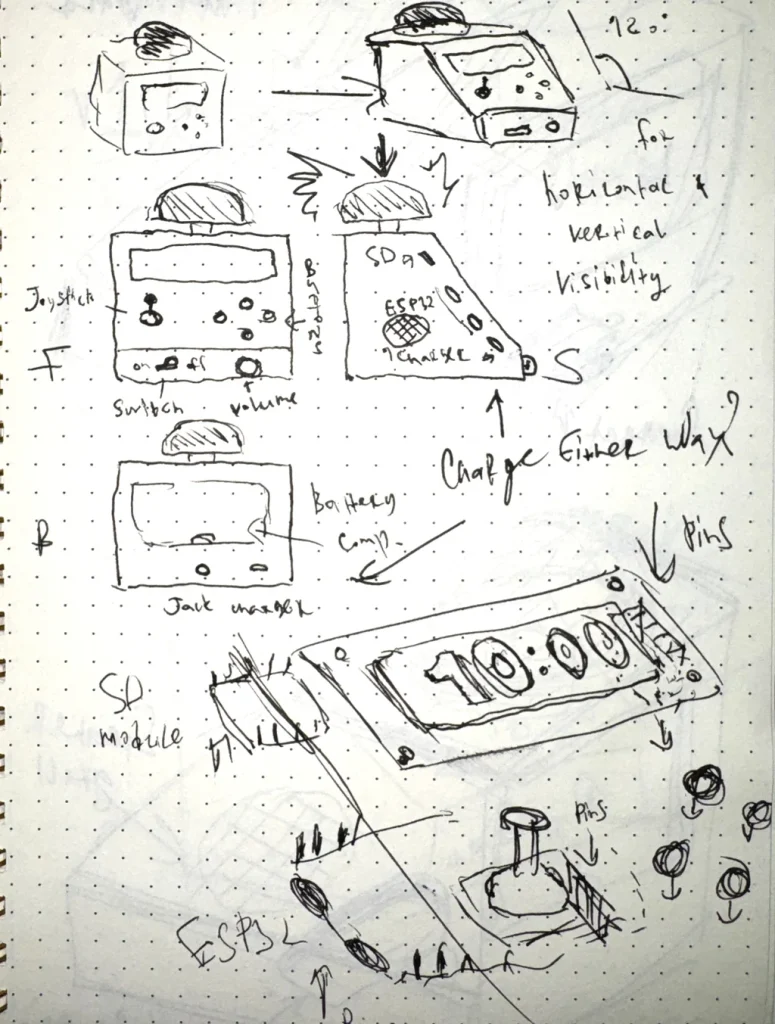 120°
for
horizontal &
vertical
visibility
Joystick
SD
ESP32
charger
F
on off
S
Switch
volume
Charge Either Way?
B
Battery
Comp.
Jack charger
Pins
10:00
SD
module
Pins
ESP32